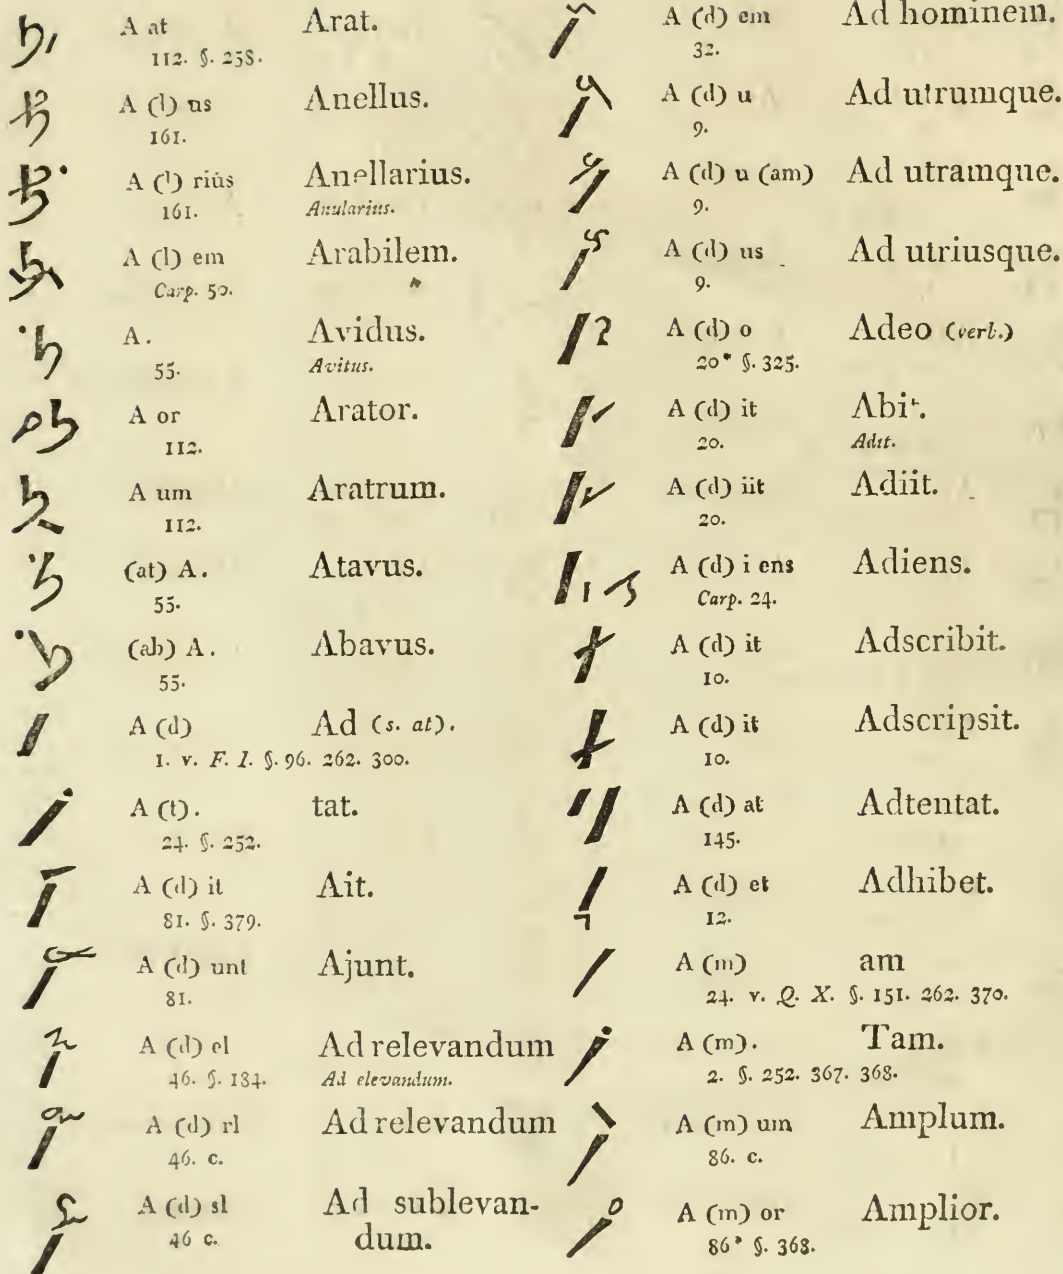 A at Arat.
112. §. 258.
A (l) us Anellus.
161.
A (l) rius Anellarius.
161. Anularius.
A (l) em Arabilem.
Carp. 50.
A. Avidus.
55. Avitus.
A or Arator.
112.
A um Aratrum.
112.
(at) A. Atavus.
55.
(ab) A. Abavus.
55.
A (d) Ad (s. at).
1. v. F. I. §. 96. 262. 300.
A (t). tat.
24. §. 252.
A (d) it Ait.
81. §. 379.
A (d) unt Ajunt.
81.
A (d) el Ad relevandum
46. §. 184. Ad elevandum.
A (d) rl Ad relevandum
46. c.
A (d) sl Ad sublevan-
46 c. dum.
A (d) em Ad hominem.
32.
A (d) u Ad utrumque.
9.
A (d) u (am) Ad utramque.
9.
A (d) us Ad utriusque.
9.
A (d) o Adeo (verb.)
20* §. 325.
A (d) it Abit.
20. Adit.
A (d) iit Adiit.
20.
A (d) i ens Adiens.
Carp. 24.
A (d) it Adscribit.
10.
A (d) it Adscripsit.
10.
A (d) at Adtentat.
145.
A (d) et Adhibet.
12.
A (m) am
24. v. Q. X. §. 151. 262. 370.
A (m). Tam.
2. §. 252. 367. 368.
A (m) um Amplum.
86. c.
A (m) or Amplior.
86* §. 368.